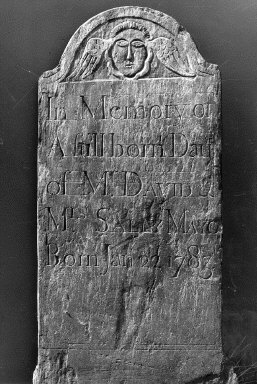 In Memory of
A stillborn Dau
of Mr. DAVID &
Mrs. SALLY
Born Jan 1787